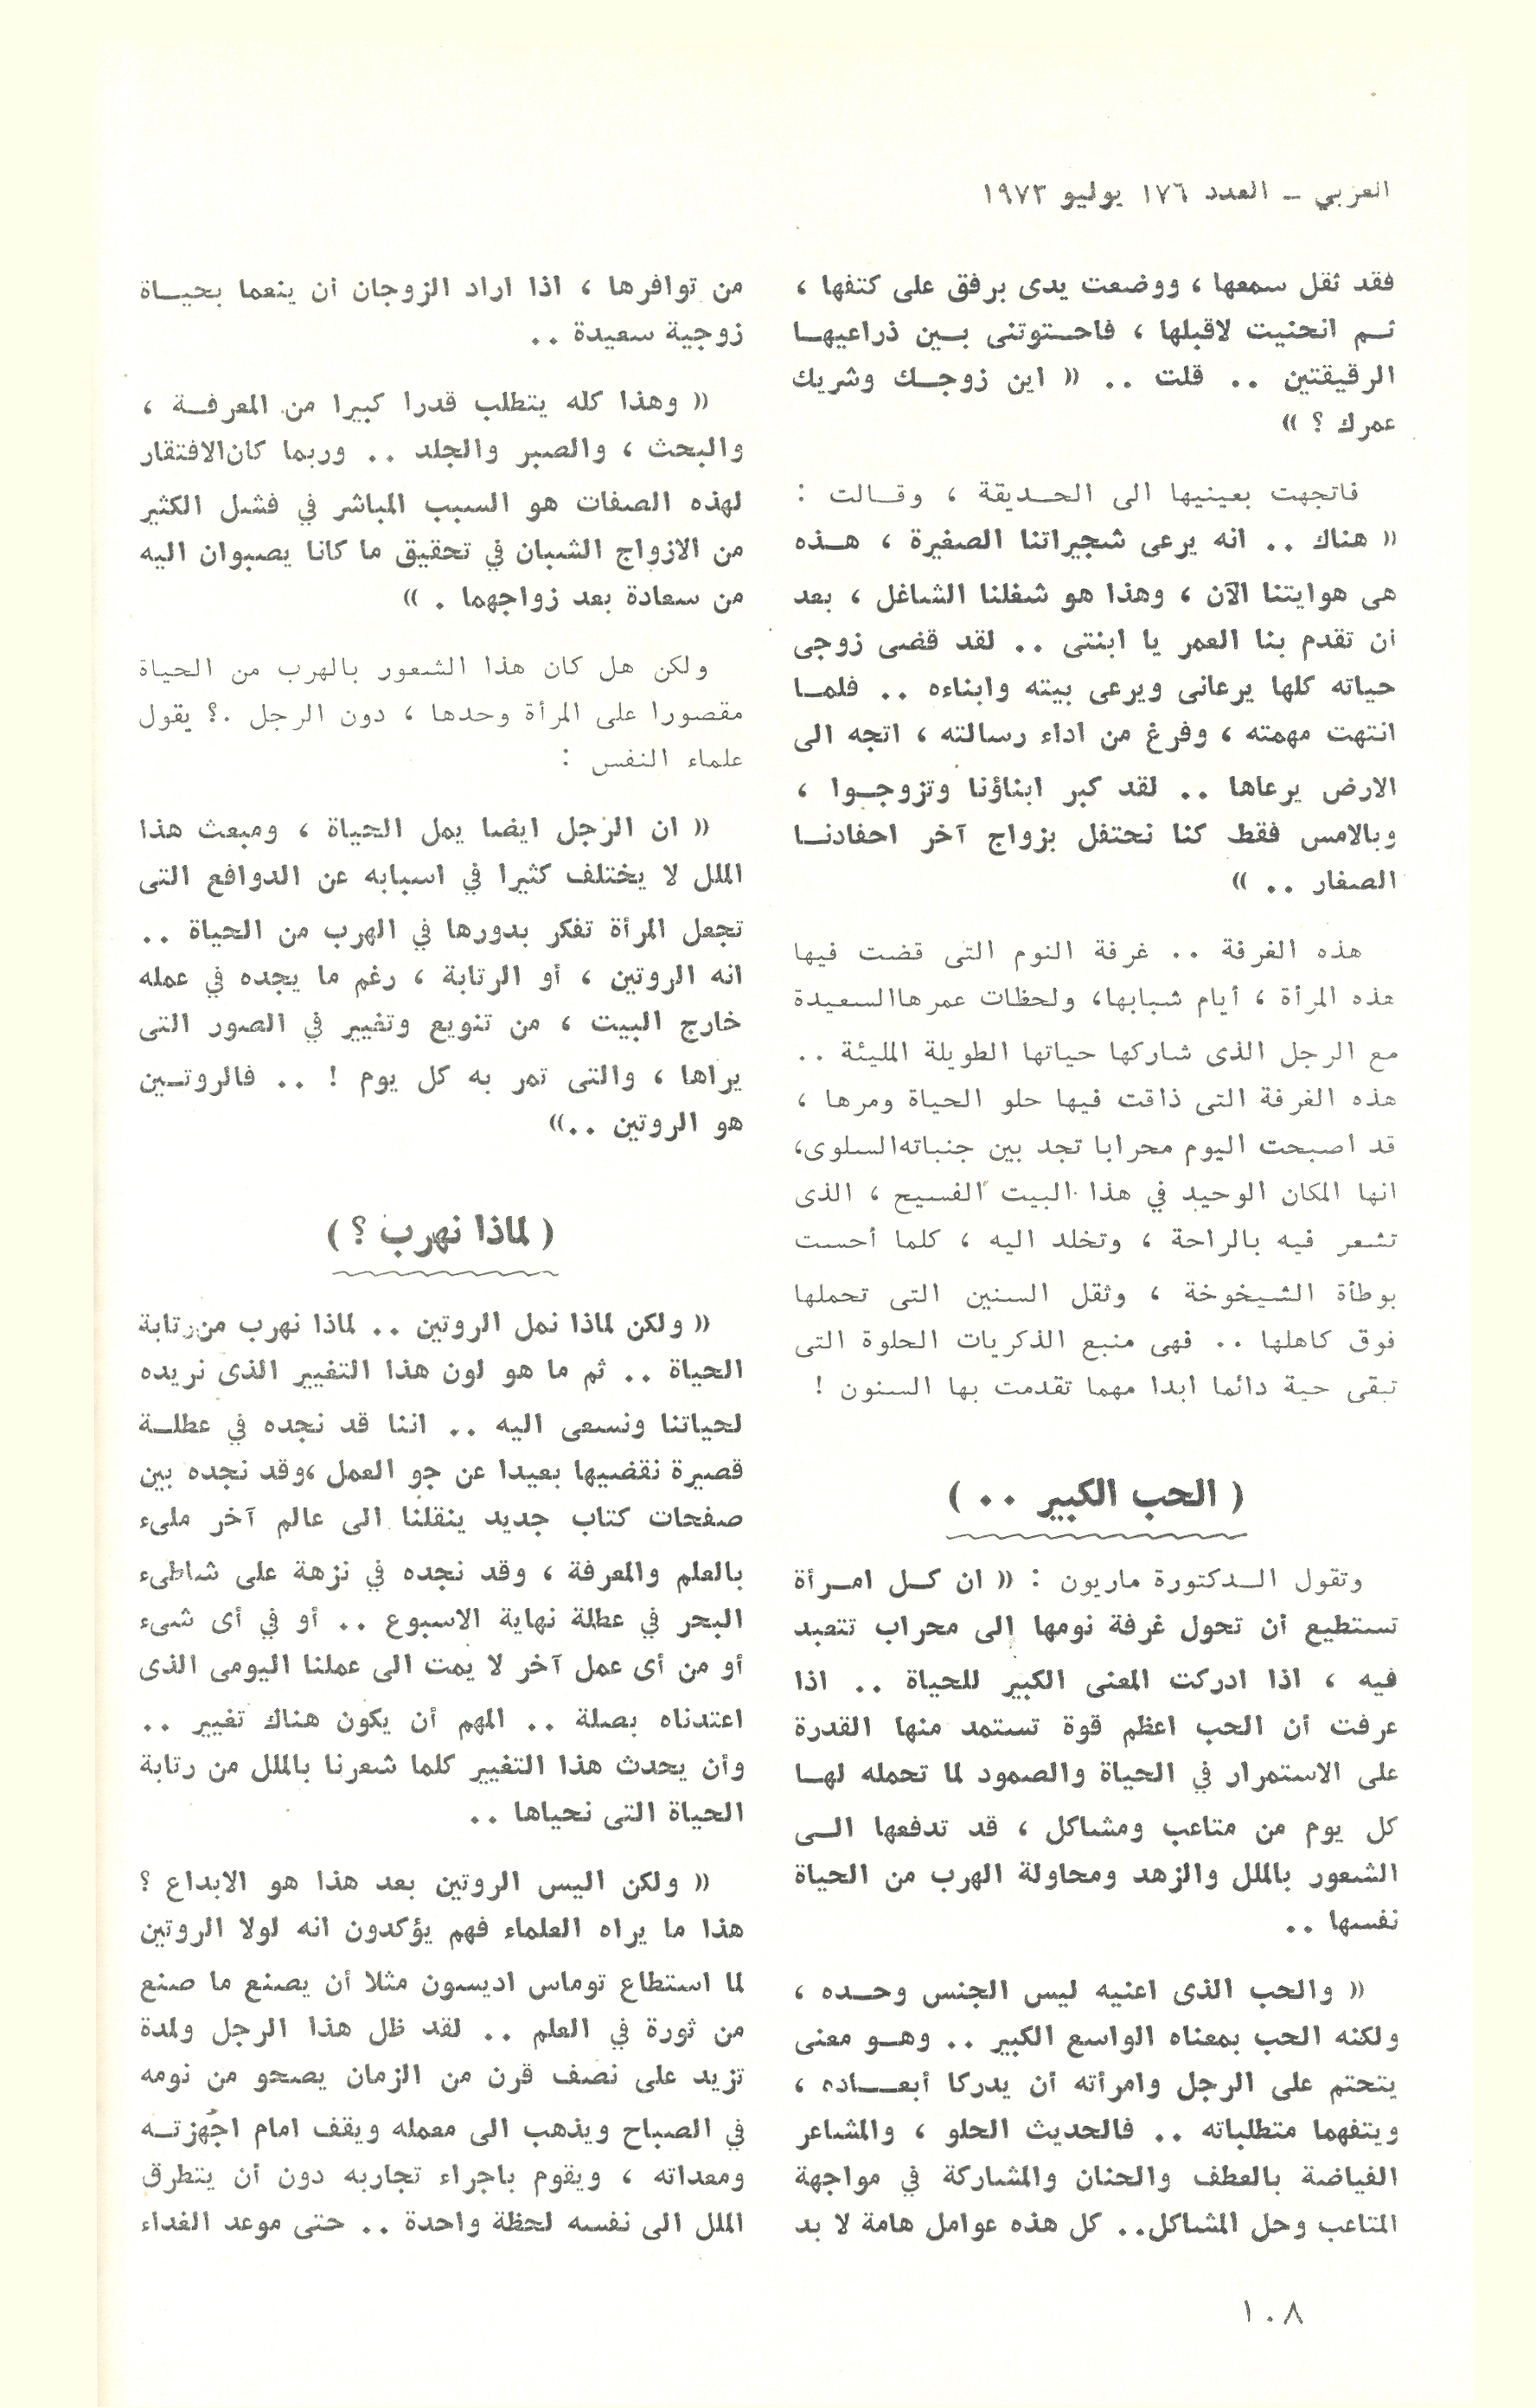 العربي ــ العدد ١٧٦ يوليو ١٩٧٣
فقد ثقل سمعها ، ووضعت يدى برفق على كتفها ،
ثـم انحنيت لاقبلها ، فاحـتوتنى بـين ذراعيهـا
الرقيقتين .. قلت .. « اين زوجـك وشريك
عمرك ؟ »
فاتجهت بعينيها الى الحـديقة ، وقـالت :
« هناك .. انه يرعى شجيراتنا الصغيرة ، هـذه
هى هوايتنا الآن ، وهذا هو شغلنا الشاغل ، بعد
أن تقدم بنا العمر يا ابنتى .. لقد قضى زوجى
حياته كلها يرعانى ويرعى بيته وابناءه .. فلمـا
انتهت مهمته ، وفرغ من اداء رسالته ، اتجه الى
الارض يرعاها .. لقد كبر ابناؤنا وتزوجـوا ،
وبالامس فقط كنا نحتفل بزواج آخر احفادنـا
الصغار .. »
هذه الغرفة .. غرفة النوم التى قضت فيها
هذه المرأة ، أيام شبابها، ولحظات عمرها السعيدة
مع الرجل الذى شاركها حياتها الطويلة المليئة ..
هذه الغرفة التى ذاقت فيها حلو الحياة ومرها ،
قد اصبحت اليوم محرابا تجد بين جنباته السلوى،
انها المكان الوحيد في هذا البيت الفسيح ، الذى
تشعر فيه بالراحة ، وتخلد اليه ، كلما أحست
بوطأة الشيخوخة ، وثقل السنين التى تحملها
فوق كاهلها .. فهى منبع الذكريات الحلوة التى
تبقى حية دائما ابدا مهما تقدمت بها السنون !
( الحب الكبير .. )
وتقول الـدكتورة ماريون : « ان كـل امـرأة
تستطيع أن تحول غرفة نومها إلى محراب تتعبد
فيه ، اذا ادركت المعنى الكبير للحياة .. اذا
عرفت أن الحب اعظم قوة تستمد منها القدرة
على الاستمرار في الحياة والصمود لما تحمله لهـا
كل يوم من متاعب ومشاكل ، قد تدفعها الـى
الشعور بالملل والزهد ومحاولة الهرب من الحياة
نفسها ..
« والحب الذى اعنيه ليس الجنس وحـده ،
ولكنه الحب بمعناه الواسع الكبير .. وهـو معنى
يتحتم على الرجل وامرأته أن يدركا أبعـاده ،
ويتفهما متطلباته .. فالحديث الحلو ، والمشاعر
الفياضة بالعطف والحنان والمشاركة في مواجهة
المتاعب وحل المشاكل.. كل هذه عوامل هامة لا بد
من توافرها ، اذا اراد الزوجان أن ينعما بحيـاة
زوجية سعيدة ..
« وهذا كله يتطلب قدرا كبيرا من المعرفـة ،
والبحث ، والصبر والجلد .. وربما كان الافتقار
لهذه الصفات هو السبب المباشر في فشل الكثير
من الازواج الشبان في تحقيق ما كانا يصبوان اليه
من سعادة بعد زواجهما . »
ولكن هل كان هذا الشعور بالهرب من الحياة
مقصورا على المرأة وحدها ، دون الرجل .؟ يقول
علماء النفس :
« ان الرجل ايضا يمل الحياة ، ومبعث هذا
الملل لا يختلف كثيرا في اسبابه عن الدوافع التى
تجعل المرأة تفكر بدورها في الهرب من الحياة ..
انه الروتين ، أو الرتابة ، رغم ما يجده في عمله
خارج البيت ، من تنويع وتغيير في الصور التى
يراها ، والتى تمر به كل يوم ! .. فالروتـين
هو الروتين ..»
( لماذا نهرب ؟ )
« ولكن لماذا نمل الروتين .. لماذا نهرب من رتابة
الحياة .. ثم ما هو لون هذا التغيير الذى نريده
لحياتنا ونسعى اليه .. اننا قد نجده في عطلـة
قصيرة نقضيها بعيدا عن جو العمل ،وقد نجده بين
صفحات كتاب جديد ينقلنا الى عالم آخر ملىء
بالعلم والمعرفة ، وقد نجده في نزهة على شاطىء
البحر في عطلة نهاية الاسبوع .. أو في أى شىء
أو من أى عمل آخر لا يمت الى عملنا اليومى الذى
اعتدناه بصلة .. المهم أن يكون هناك تغيير ..
وأن يحدث هذا التغيير كلما شعرنا بالملل من رتابة
الحياة التى نحياها ..
« ولكن اليس الروتين بعد هذا هو الابداع ؟
هذا ما يراه العلماء فهم يؤكدون انه لولا الروتين
لما استطاع توماس اديسون مثلا أن يصنع ما صنع
من ثورة في العلم .. لقد ظل هذا الرجل ولمدة
تزيد على نصف قرن من الزمان يصحو من نومه
في الصباح ويذهب الى معمله ويقف امام اجهزتـه
ومعداته ، ويقوم باجراء تجاربه دون أن يتطرق
الملل الى نفسه لحظة واحدة .. حتى موعد الغداء
١٠٨